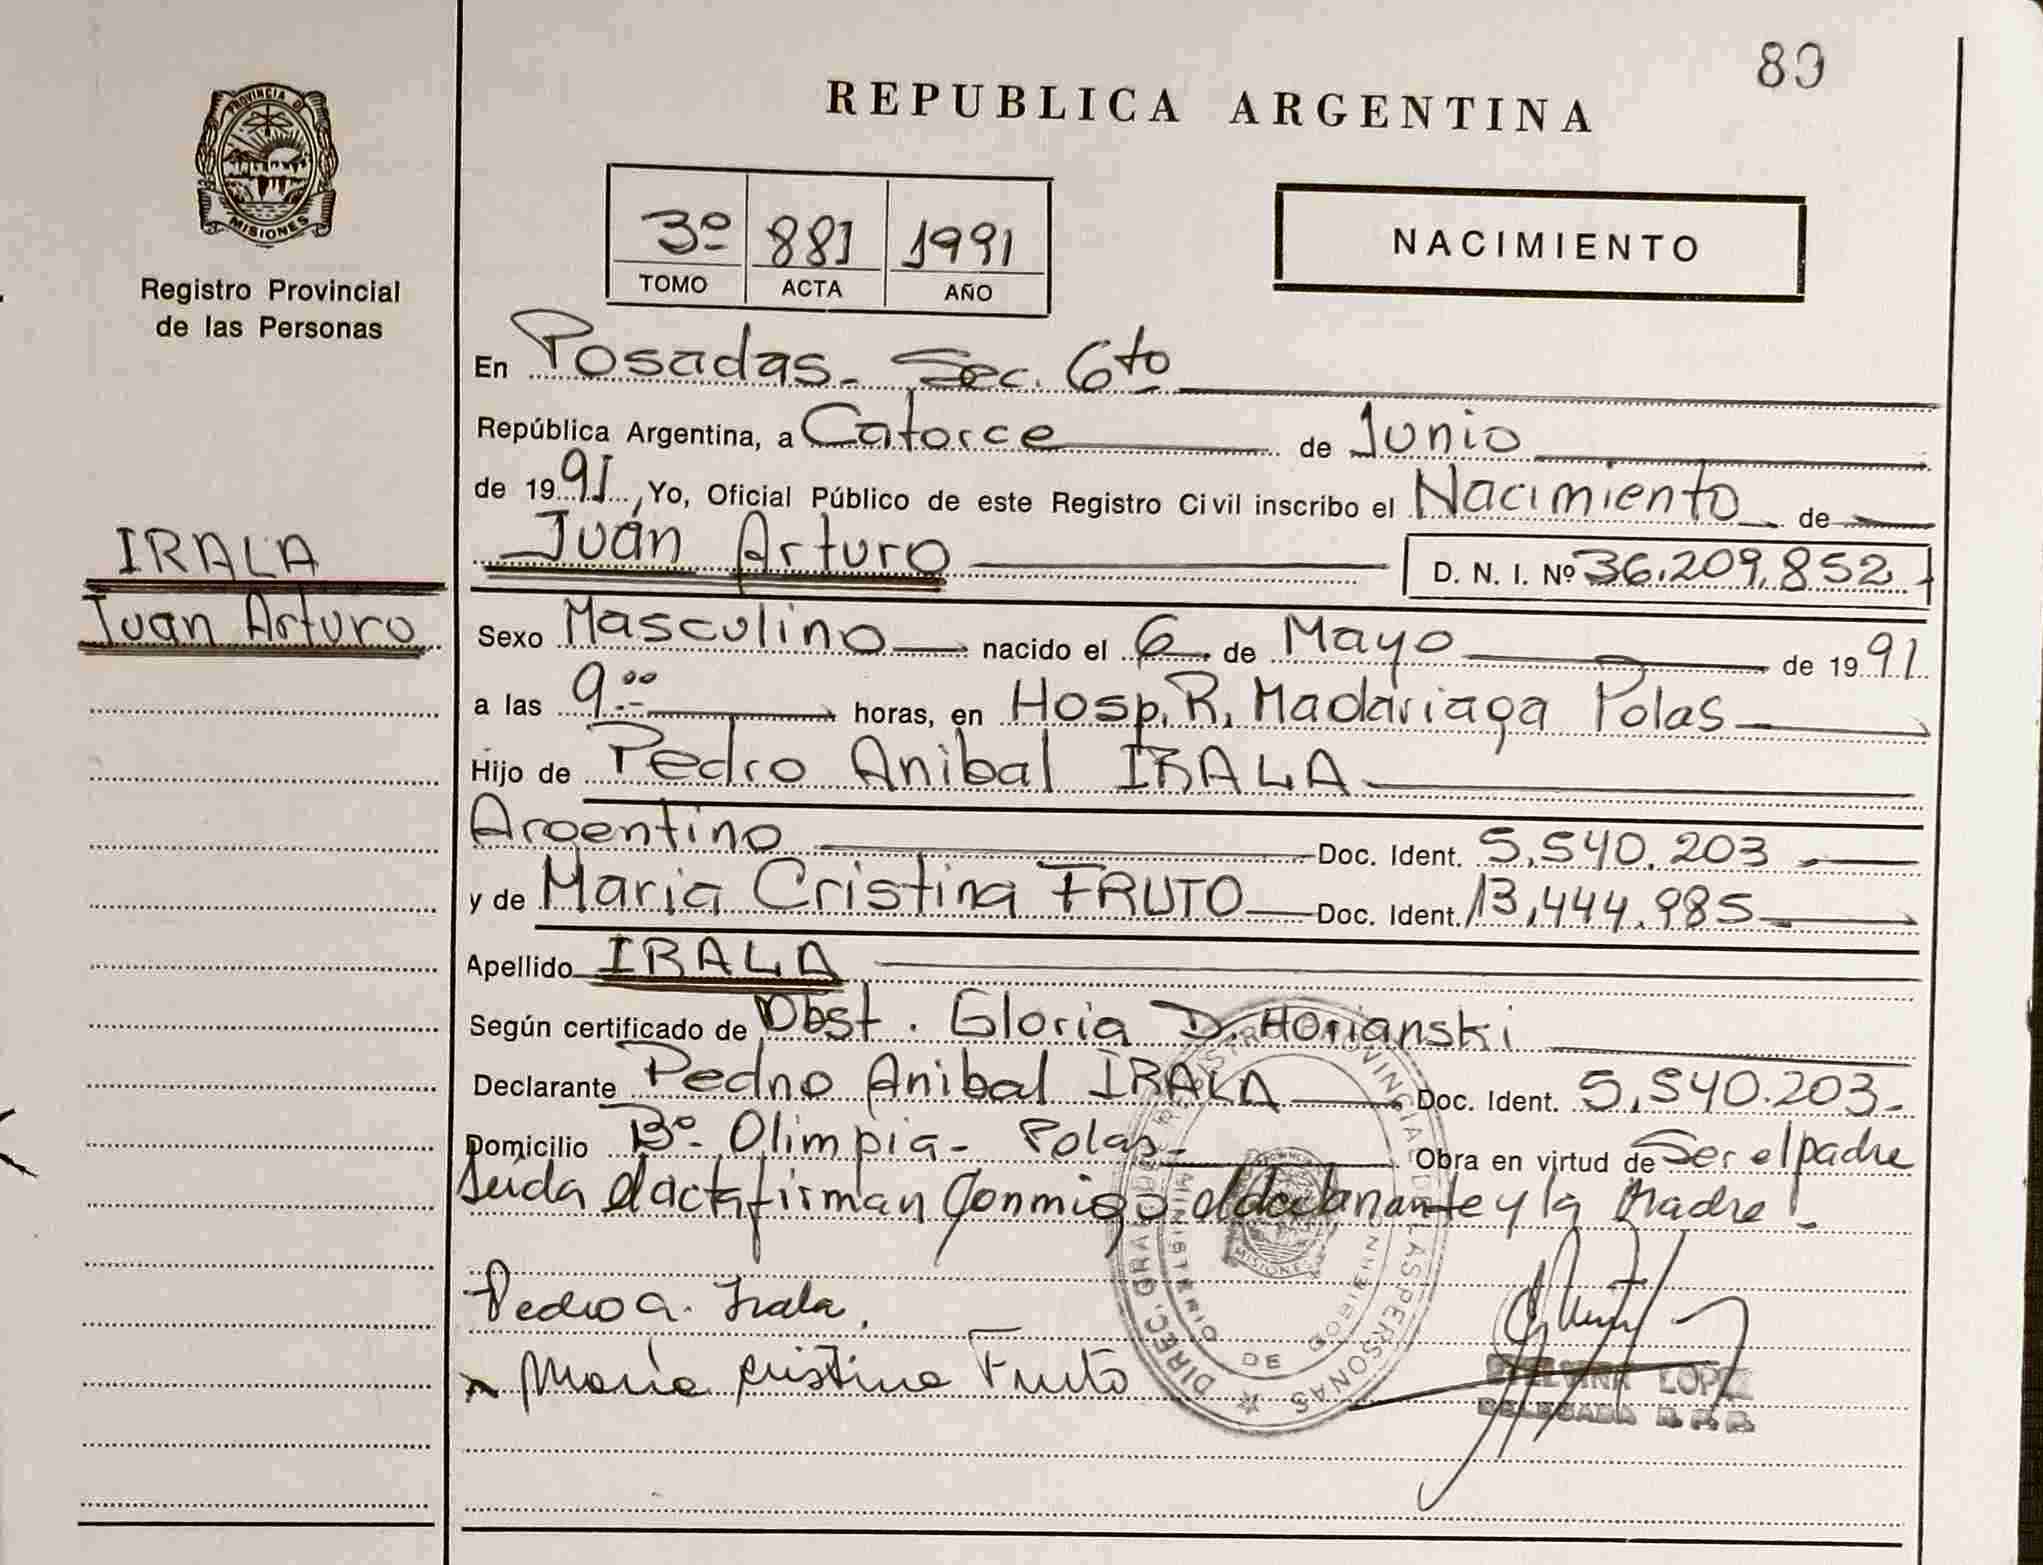 80
REPUBLICA ARGENTINA
PROVINCIA D
MISIONES
Registro Provincial
de las Personas
3º 881 1991
TOMO ACTA AÑO
NACIMIENTO
En Posadas - Sec. 6to
República Argentina, a Catorce de Junio
de 1991, Yo, Oficial Público de este Registro Civil inscribo el Nacimiento de
Juan Arturo D. N. I. Nº 36.209.852
IRALA
Juan Arturo
Sexo Masculino nacido el 6 de Mayo de 1991
a las 9:00 horas, en Hosp. R. Madariaga Pdas
Hijo de Pedro Anibal IRALA
Argentino Doc. Ident. 5.540.203
y de Maria Cristina FRUTO Doc. Ident. 13.444.985
Apellido IRALA
Según certificado de Obst. Gloria D. Horianski
Declarante Pedro Anibal IRALA Doc. Ident. 5.540.203-
Domicilio Bº- Olimpia- Pdas- Obra en virtud de Ser el padre
Leida el acta firman Conmigo el declarante y la Madre!
Pedro A. Irala.
María Cristina Fruto
DIREC. GRAL DE REGISTRO PROVINCIAL DE LAS PERSONAS
MINISTERIO DE GOBIERNO
MISIONES
LOPEZ
DELEGADA R.P.P.